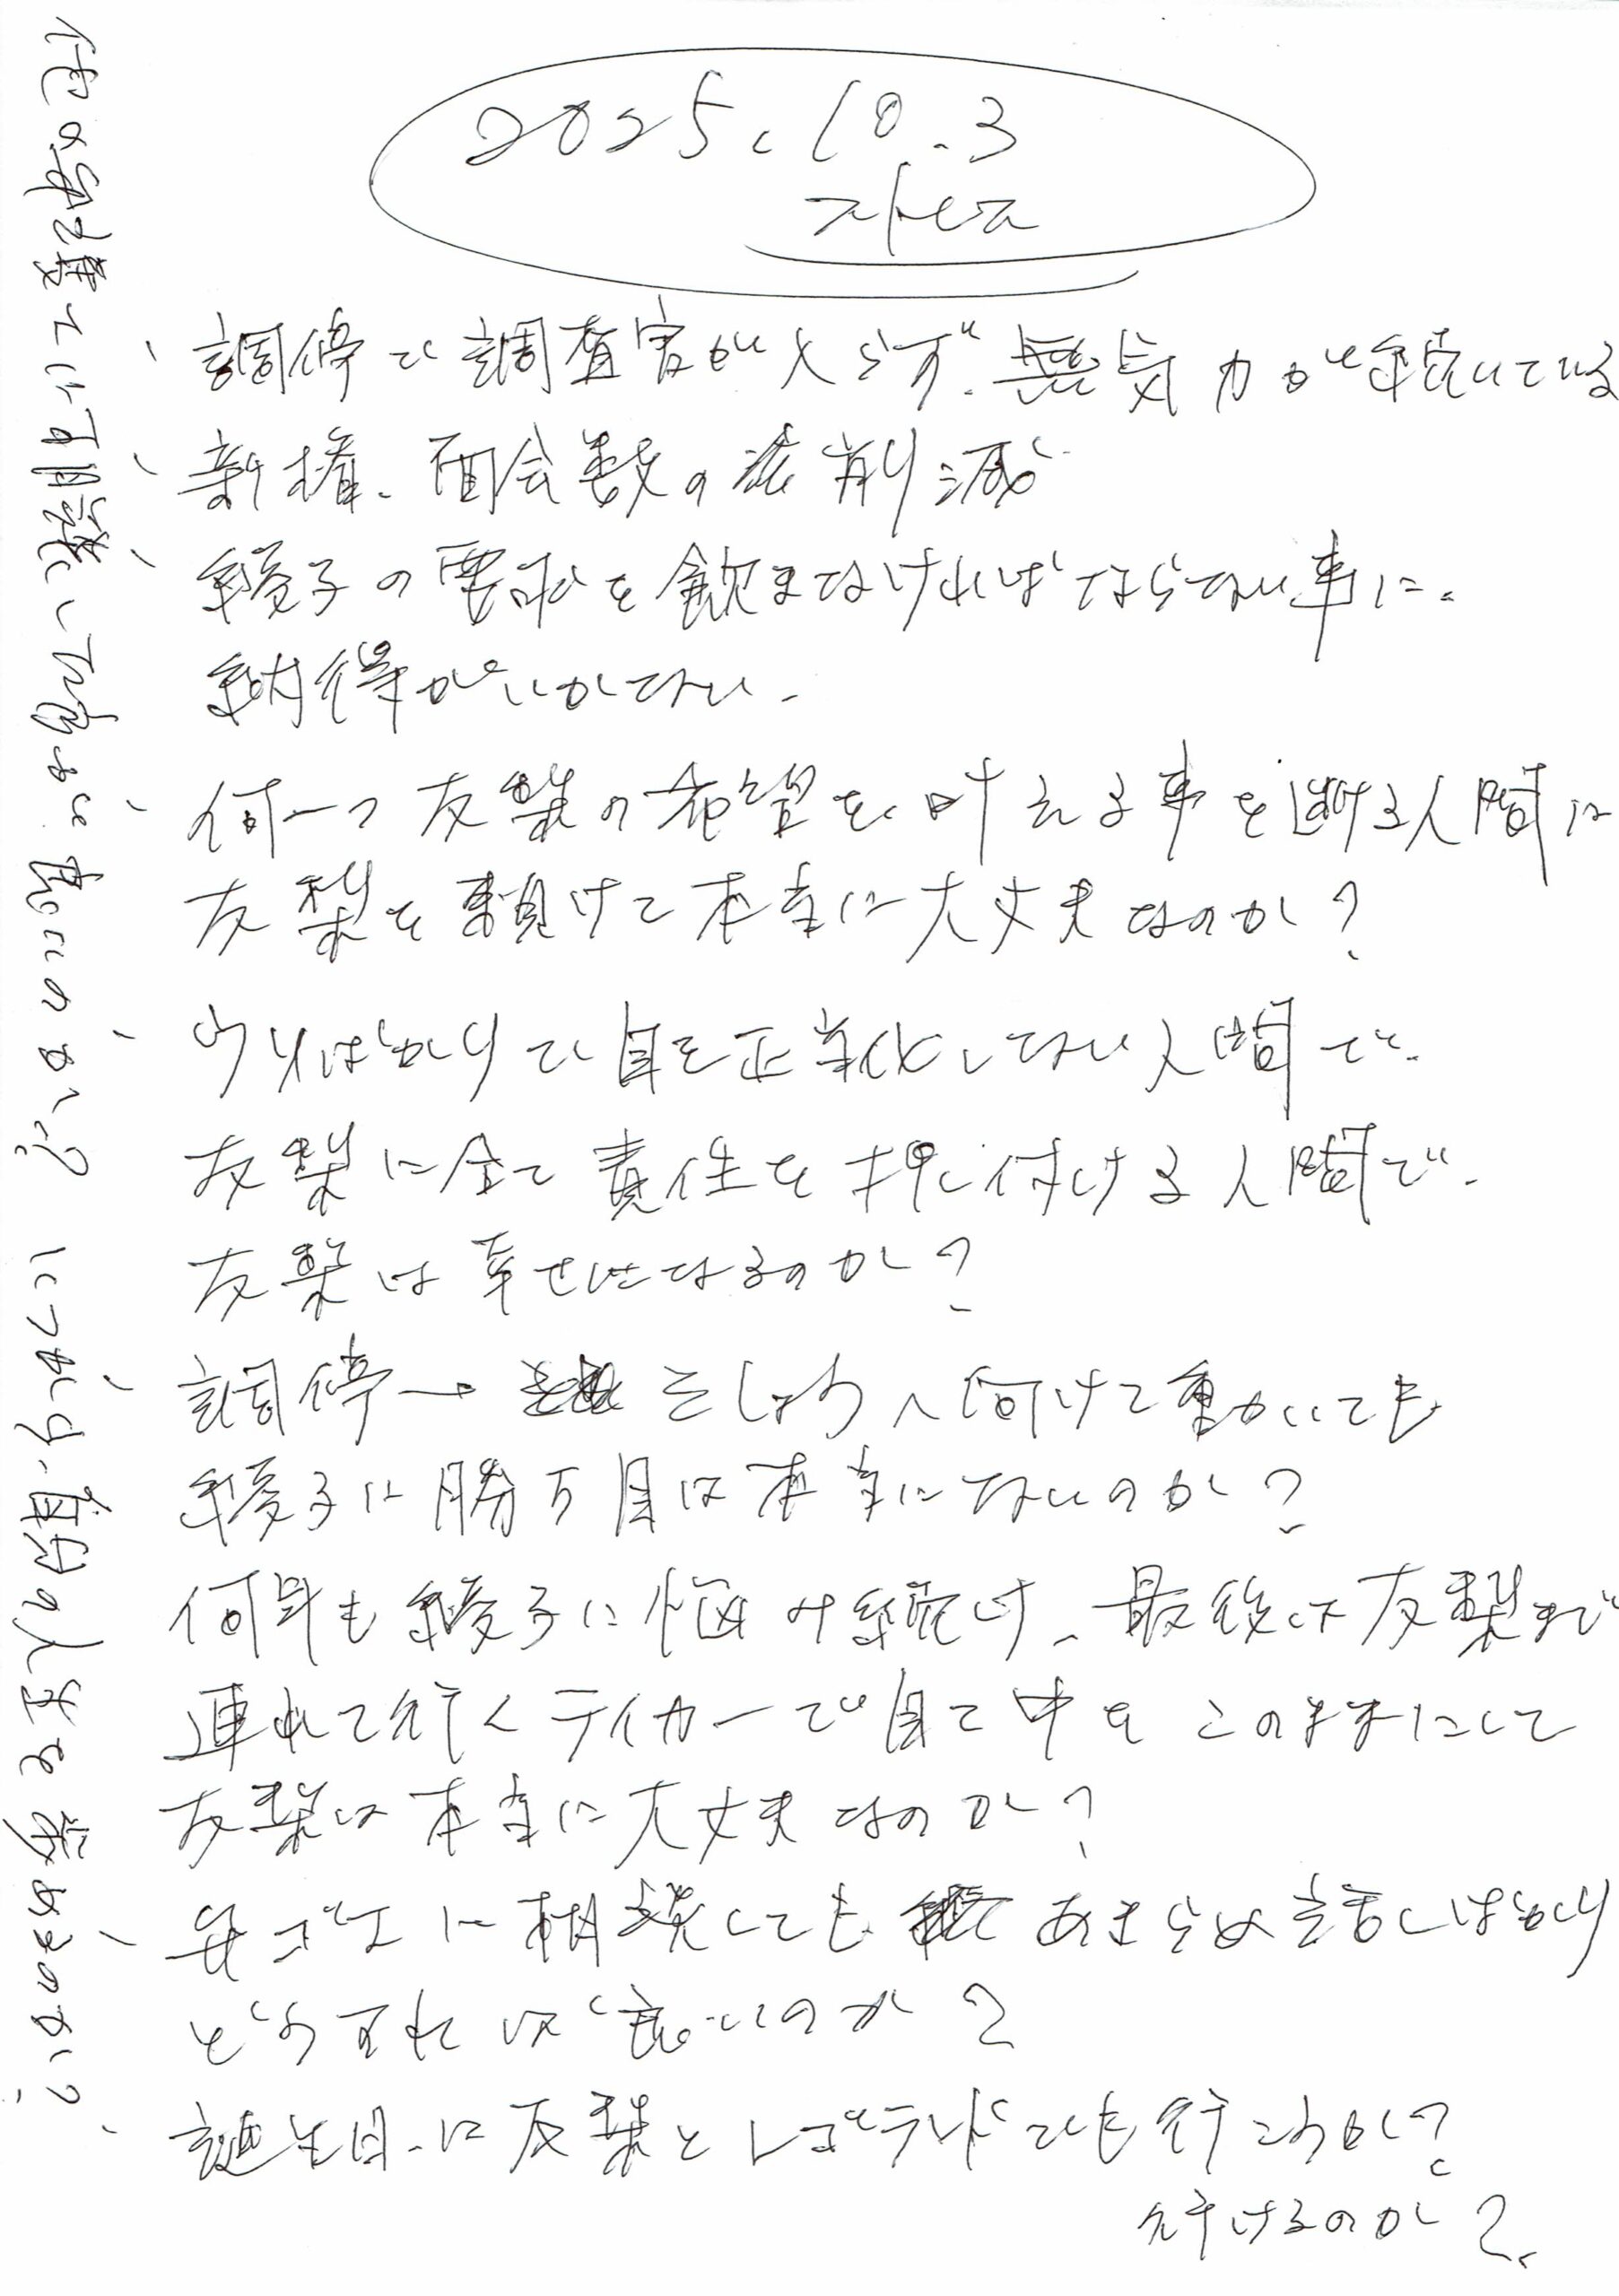 2025.10.3
、調停で調査官が入らず、無気力が続いている
、親権、面会数の 削減
、綾子の要求を飲まなければならない事に。
納得がいかない。
、何一つ友梨の希望を叶える事を避ける人間に
友梨を預けて本当に大丈夫なのか?
、ウソばかりで自を正当化してない人間で、
友梨に全て責任を押し付ける人間で、
友梨は幸せになるのか?
、調停→そしょうへ向けて動いても
綾子に勝つ目は本当にないのか?
何年も綾子に悩み続け、最後は友梨まで
連れて行く で このままにして
友梨は本当に大丈夫なのか?
、弁ゴ士に相談しても あきらめ話しばかり
どうすれば良いのか?
、誕生日に友梨とレゴランドでも行こうか?
行けるのか?
他の弁護士に相談して見ても良いのか? 自分の人生を 諦めるのか?